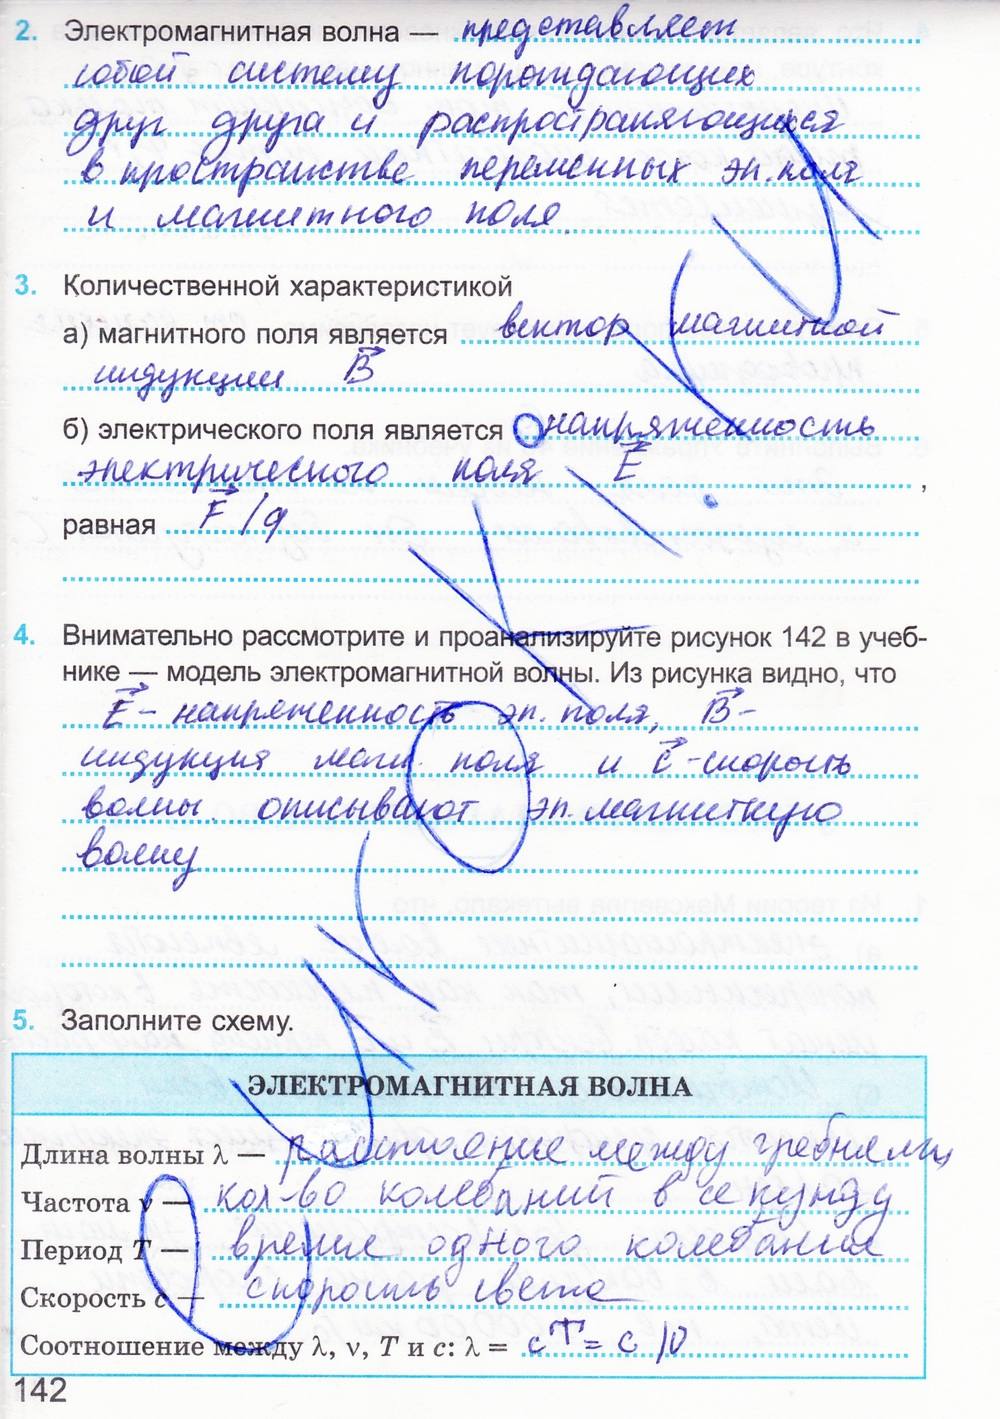 2. Электромагнитная волна — представляет
собой систему порождающих
друг друга и распространяющихся
в пространстве переменных эл. поля
и магнитного поля.
3. Количественной характеристикой
а) магнитного поля является вектор магнитной
индукции B
б) электрического поля является напряженность
электрического поля E,
равная F/q
4. Внимательно рассмотрите и проанализируйте рисунок 142 в учеб-
нике — модель электромагнитной волны. Из рисунка видно, что
E - напряженность эл. поля, B -
индукция магн. поля и c - скорость
волны описывают эл. магнитную
волну
5. Заполните схему.
ЭЛЕКТРОМАГНИТНАЯ ВОЛНА
Длина волны λ — расстояние между гребнями
Частота ν — кол-во колебаний в секунду
Период T — время одного колебания
Скорость c — скорость света
Соотношение между λ, ν, T и c: λ = cT = c/ν
142